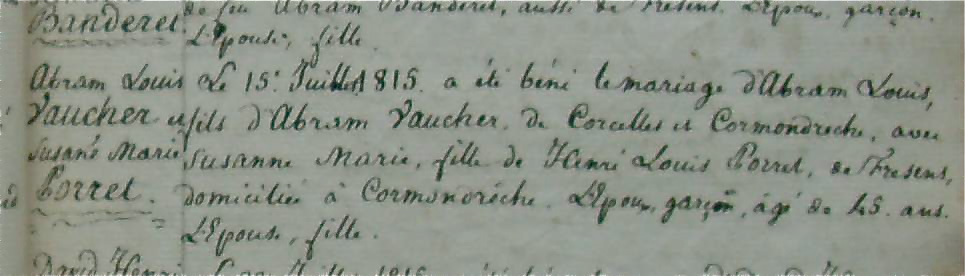 de feu Abram Banderet, aussi de Fresens. L'Epoux, garçon.
Banderet. L'Epouse, fille.
Abram Louis Le 15e. Juillet 1815. a été béni le mariage d'Abram Louis,
Vaucher et fils d'Abram Vaucher, de Corcelles et Cormondrèche, avec
Susane Marie Susanne Marie, fille de Henri Louis Porret, de Fresens,
Porret. domiciliée à Cormondrèche. L'Epoux, garçon, âgé de 45. ans.
L'Epouse, fille.
David Henri